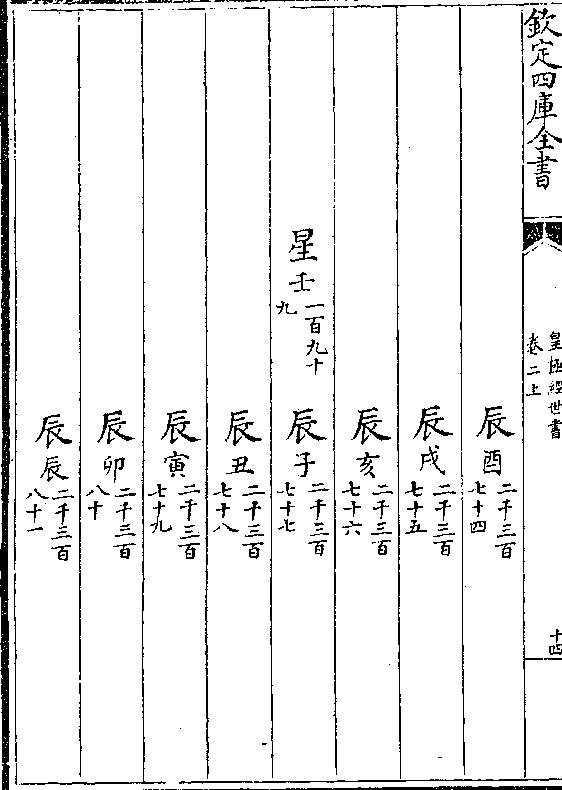 欽定四庫全書
皇極經世書
卷二上
十四
辰酉二千三百七十四
辰戌二千三百七十五
辰亥二千三百七十六
星壬一百九十九
辰子二千三百七十七
辰丑二千三百七十八
辰寅二千三百七十九
辰卯二千三百八十
辰辰二千三百八十一